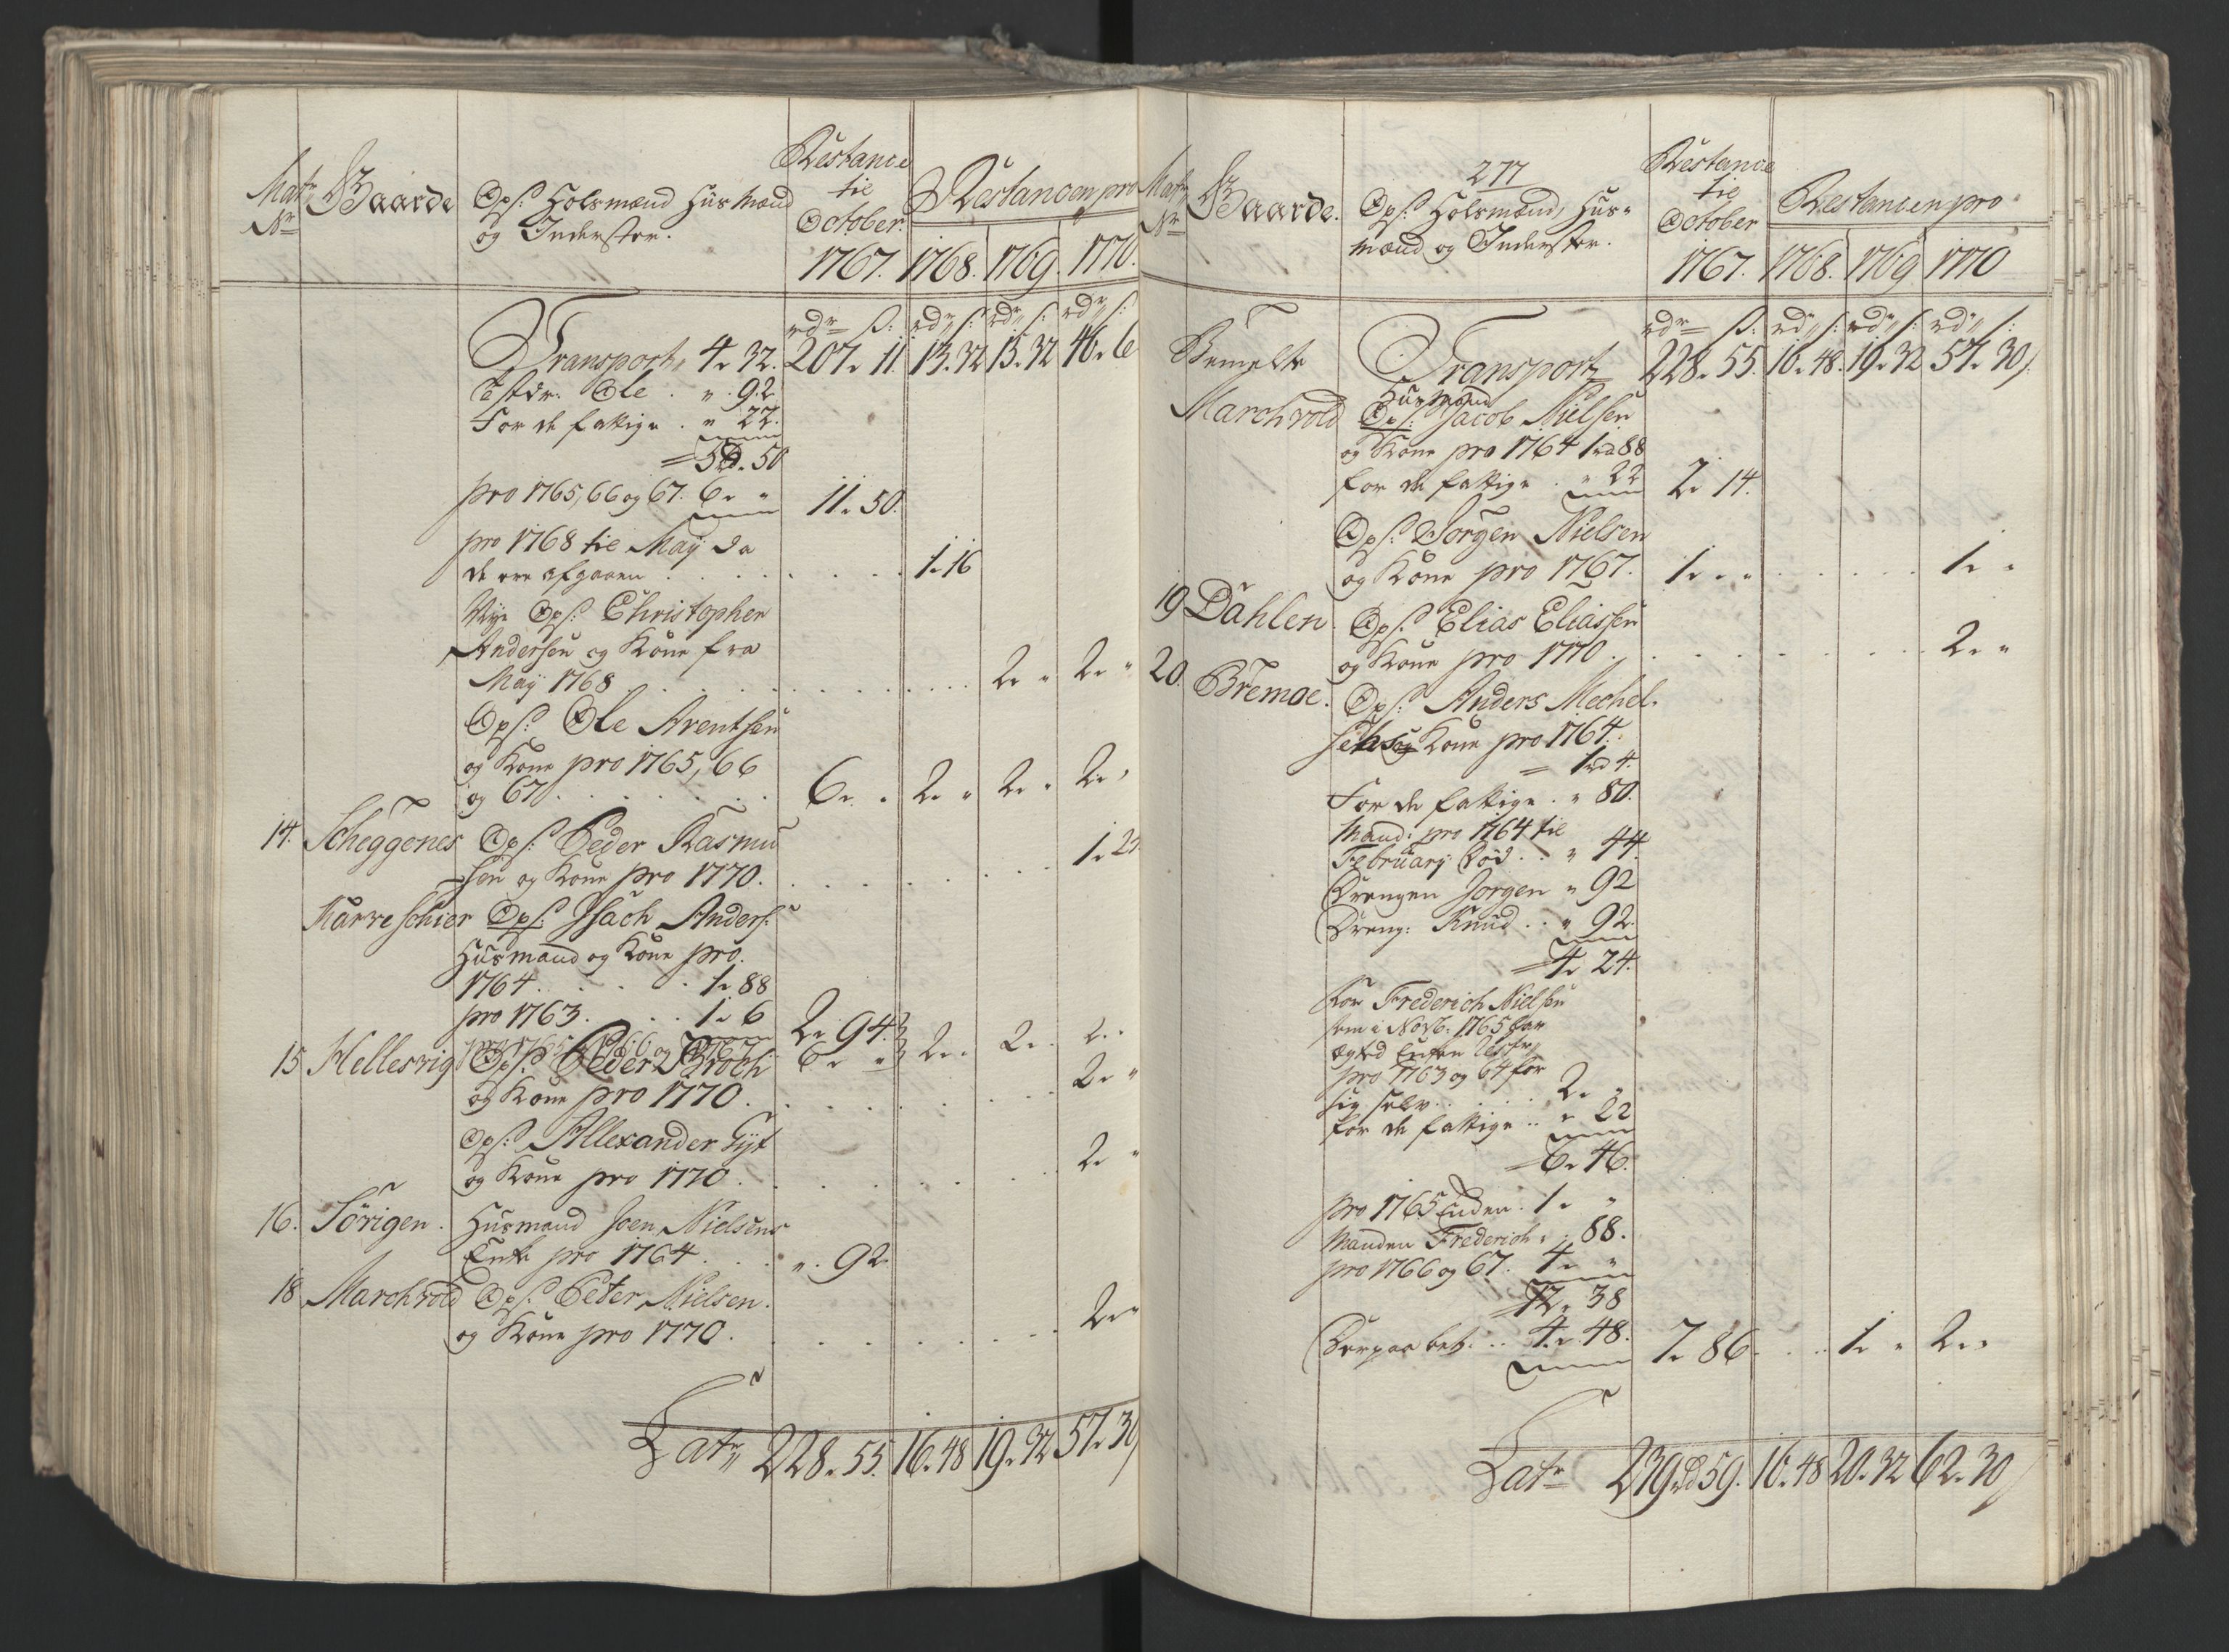 Matr Nr
Gaarde
Ops: Holsmænd Husmænd
og Inderster.
Restance
til
October
1767.
Restancen pro
1768. 1769. 1770.
rdr ß: rdr ß: rdr ß: rdr ß:
Transport 4. 32. 207. 11. 13. 32 13. 32 46. 6
Ole . " . 92
For de fattige . " 22.
5. 50
pro 1765, 66 og 67. 6. " 11. 50.
pro 1768 til Maÿ da
de ere afgaaen . . . 1. 16
Nÿe Ops: Christopher
Andersen og Kone fra
Maÿ 1768 . . . 2. " 2. "
Ops: Ole Arentsen
og Kone pro 1765, 66
og 67 . . . 6. " 2. " 2. " 2. "
14. Scheggenes Ops: Peder Rasmu
sen og Kone pro 1770. . . . 1. 23
Karreschier Ops: Jsach Anders:
Husmand og Kone pro.
1764 . . . 1. 88
pro 1763 . . . 1. 6 2. 94.
pro 1765, 1766 og 1767 6. " 2. " 2. " 2. "
15 Hellesvig Ops: Peder Broch
og Kone pro 1770 . . . 2. "
Ops: Allexander Gÿt
og Kone pro 1770 . . . 2. "
16. Sörigen. Husmand Joen Nielsens
Enke pro 1764 . . . " . 92
18 Marchvold Ops: Peter Nielsen.
og Kone pro 1770 . . . 2. "
Latr 228. 55. 16. 48 19. 32 57. 30
Matr Nr
Gaarde.
277
Ops: Holsmænd, Hus-
mænd og Inderster.
Restance
til
October
1767.
Restancen pro
1768. 1769 1770
rdr ß: rdr ß: rdr ß: rdr ß:
Bemelte Transport 228. 55. 16. 48. 19. 32 57. 30
Husmand
Marchvold Ops: Jacob Nielsen
og Kone pro 1764 1rd 88
for de fattige . " 22 2. 14.
Ops: Jörgen Nielsen
og Kone pro 1767. 1. " . . . 1. "
19 Dahlen. Ops: Elias Eliassen
og Kone pro 1770 . . . 2. "
20. Bremoe. Ops: Anders Mechel-
sens og Kone pro 1764.
1rd 4.
For de fattige . " 80.
Mand: pro 1764 til
Februarÿ död . . " 44.
Drengen Jörgen " 92
Dreng: Knud . . " 92.
4. 24.
For Frederich Nielsen
som i Novb: 1765 har
ægted Enken
pro 1763 og 64 for
sig selv . . . 2. "
for de fattige . . " 22
6. 46.
pro 1765 Enken. 1. "
Manden Frederich " . 88.
pro 1766 og 67. 4. "
12. 38
Derpaa bet: . . 4. 48. 7. 86. . . 1. " 2. "
Latr 239rd 59. 16. 48 20. 32 62. 30